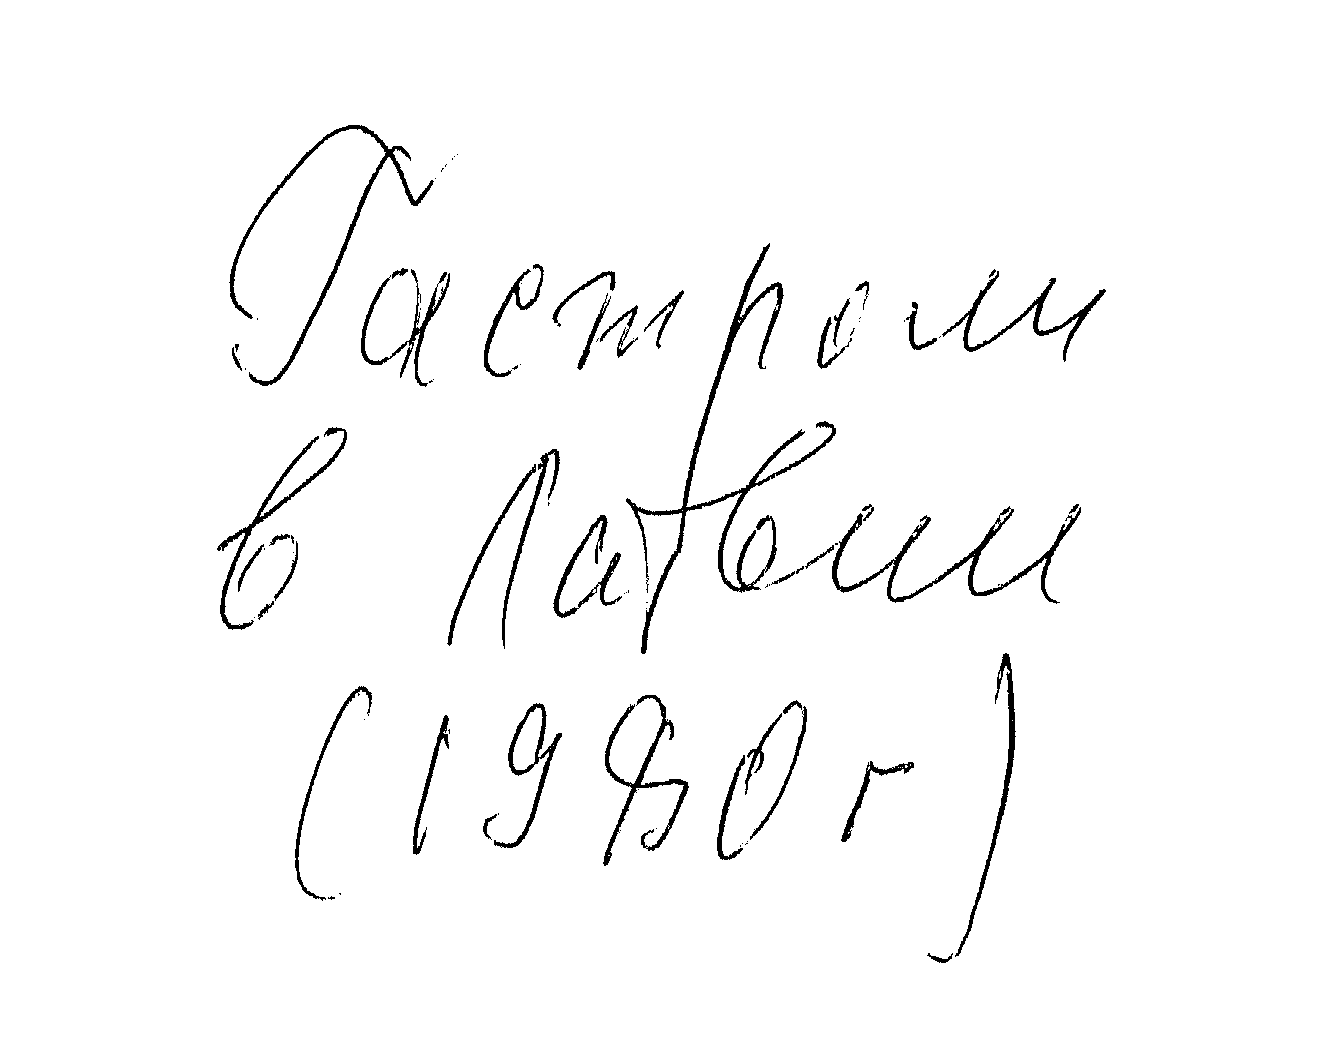 Гастроли
в Латвии
(1980 г)